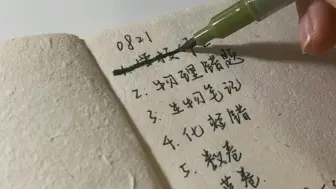 0821
2. 物理错题
3. 生物笔记
4. 化错
5. 数卷
英卷